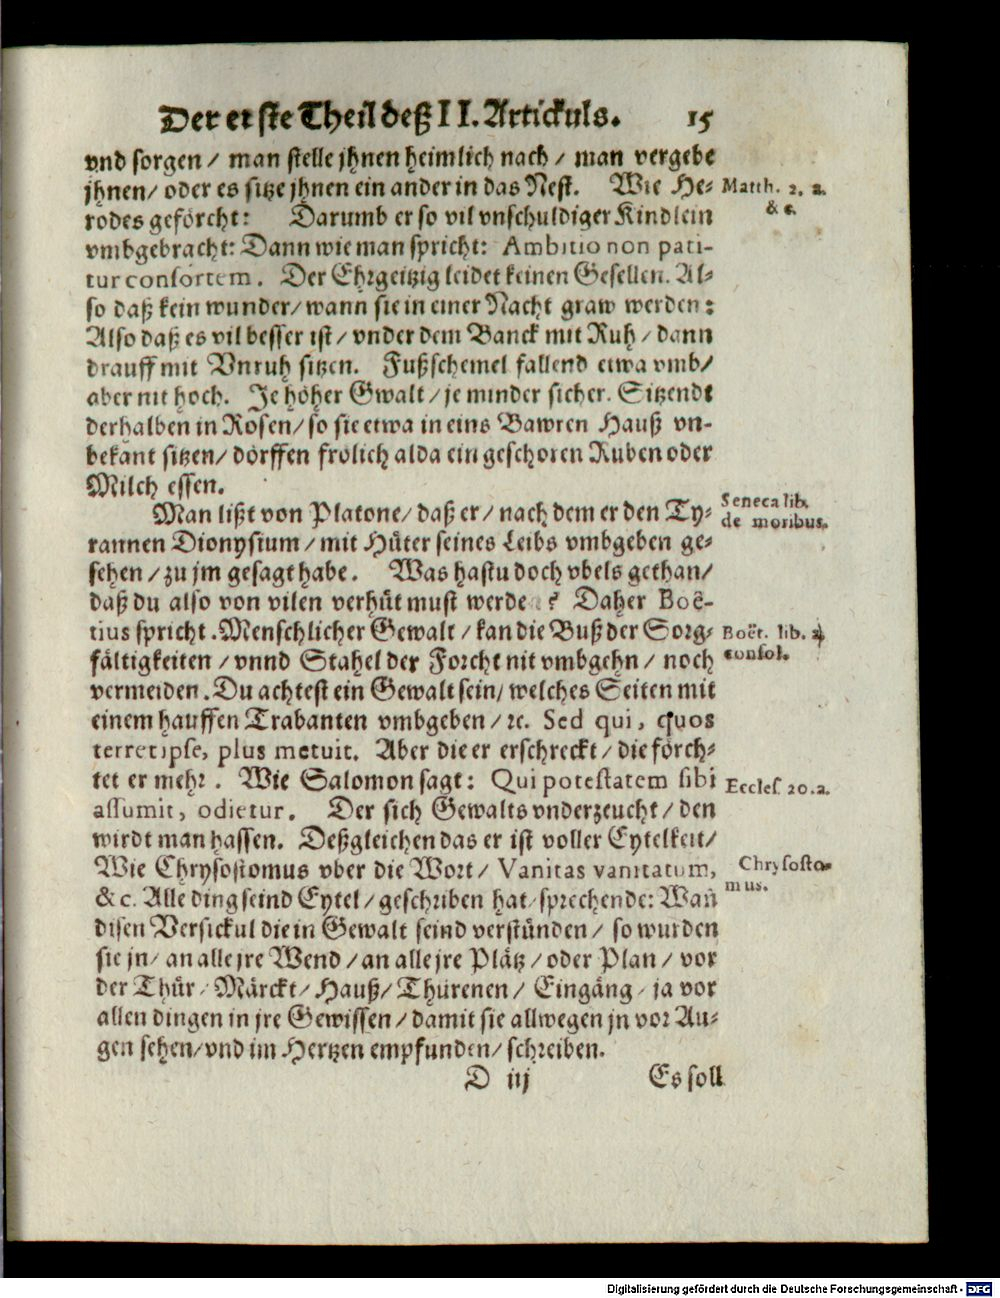 Der erste Theil deß II. Artickuls. 15
vnd sorgen / man stelle jhnen heimlich nach / man vergebe
jhnen / oder es sitze jhnen ein ander in das Nest. Wie He-
Matth. 2. a.
& c.
rodes geförcht: Darumb er so vil vnschuldiger Kindlein
vmbgebracht: Dann wie man spricht: Ambitio non pati-
tur consortem. Der Ehrgeitzig leidet keinen Gesellen. Al-
so daß kein wunder / wann sie in einer Nacht graw werden:
Also daß es vil besser ist / vnder dem Banck mit Ruh / dann
drauff mit Vnruh sitzen. Fußschemel fallend etwa vmb /
aber nit hoch. Je höher Gwalt / je minder sicher. Sitzendt
derhalben in Rosen / so sie etwa in eins Bawren Hauß vn-
bekant sitzen / dörffen frölich alda ein geschoren Ruben oder
Milch essen.
Man lißt von Platone / daß er / nach dem er den Ty-
Seneca lib.
de moribus.
rannen Dionysium / mit Hüter seines Leibs vmbgeben ge-
sehen / zu jm gesagt habe. Was hastu doch vbels gethan /
daß du also von vilen verhüt must werde ? Daher Boë-
tius spricht. Menschlicher Gewalt / kan die Buß der Sorg-
Boët. lib.
consol.
fältigkeiten / vnnd Stahel der Forcht nit vmbgehn / noch
vermeiden. Du achtest ein Gewalt sein / welches Seiten mit
einem hauffen Trabanten vmbgeben / ꝛc. Sed qui, quos
terret ipse, plus metuit. Aber die er erschreckt / die förch-
tet er mehr. Wie Salomon sagt: Qui potestatem sibi
Eccles. 20. a.
assumit, odietur. Der sich Gewalts vnderzeucht / den
wirdt man hassen. Deßgleichen das er ist voller Eytelkeit /
Wie Chrysostomus vber die Wort / Vanitas vanitatum,
Chrysosto-
mus.
& c. Alle ding seind Eytel / geschriben hat / sprechende: Wañ
disen Versickul die in Gewalt seind verstünden / so wurden
sie jn / an alle jre Wend / an alle jre Plätz / oder Plan / vor
der Thür / Märckt / Hauß / Thürenen / Eingäng / ja vor
allen dingen in jre Gewissen / damit sie allwegen jn vor Au-
gen sehen / vnd im Hertzen empfunden / schreiben.
D iij Es soll
Digitalisierung gefördert durch die Deutsche Forschungsgemeinschaft - DFG